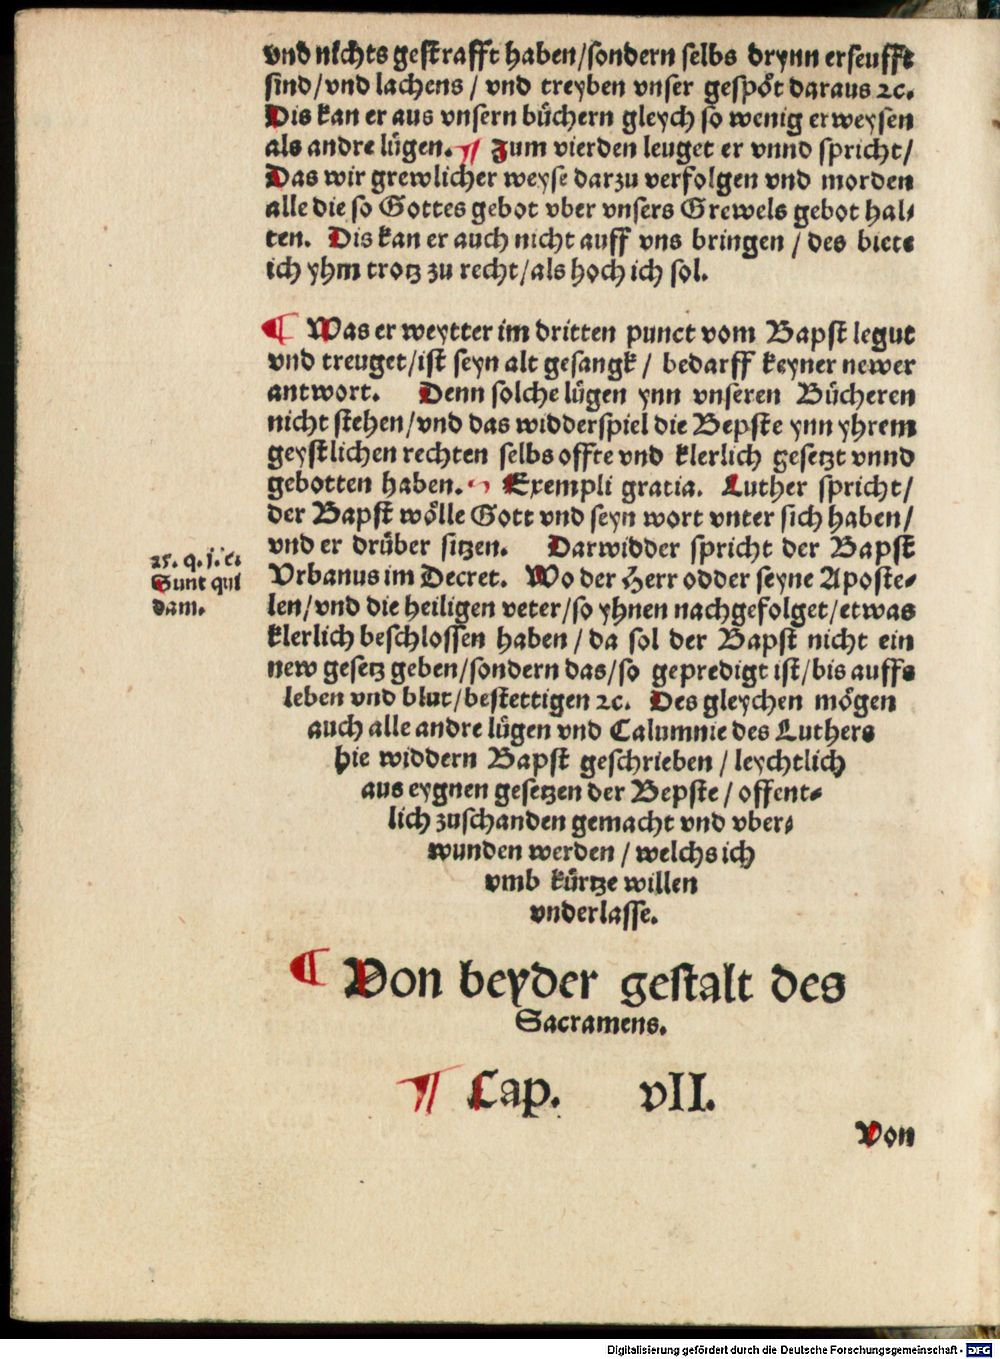 vnd nichts gestrafft haben/sondern selbs drynn erseufft
sind/vnd lachens/ vnd treyben vnser gespöt daraus ꝛc.
Dis kan er aus vnsern bůchern gleych so wenig erweysen
als andre lůgen. ¶ Zum vierden leuget er vnnd spricht/
Das wir grewlicher weyse darzu verfolgen vnd morden
alle die so Gottes gebot vber vnsers Grewels gebot hal-
ten. Dis kan er auch nicht auff vns bringen / des biete
ich yhm trotz zu recht/als hoch ich sol.
¶ Was er weytter im dritten punct vom Bapst legut
vnd treuget/ist seyn alt gesangk / bedarff keyner newer
antwort. Denn solche lůgen ynn vnseren Bůcheren
nicht stehen/vnd das widderspiel die Bepste ynn yhrem
geystlichen rechten selbs offte vnd klerlich gesetzt vnnd
gebotten haben. Exempli gratia. Luther spricht/
der Bapst wölle Gott vnd seyn wort vnter sich haben/
vnd er drůber sitzen. Darwidder spricht der Bapst
25. q. j. c.
Sunt qui
dam.
Vrbanus im Decret. Wo der Herr odder seyne Aposte-
len/vnd die heiligen veter/so yhnen nachgefolget/etwas
klerlich beschlossen haben/da sol der Bapst nicht ein
new gesetz geben/sondern das/so gepredigt ist/bis auffs
leben vnd blut/bestettigen ꝛc. Des gleychen mögen
auch alle andre lůgen vnd Calumnie des Luthers
hie widdern Bapst geschrieben / leychtlich
aus eygnen gesetzen der Bepste / offent-
lich zuschanden gemacht vnd vber-
wunden werden / welchs ich
vmb kůrtze willen
vnderlasse.
¶ Von beyder gestalt des
Sacramens.
¶ Cap. vII.
Von
Digitalisierung gefördert durch die Deutsche Forschungsgemeinschaft - DFG